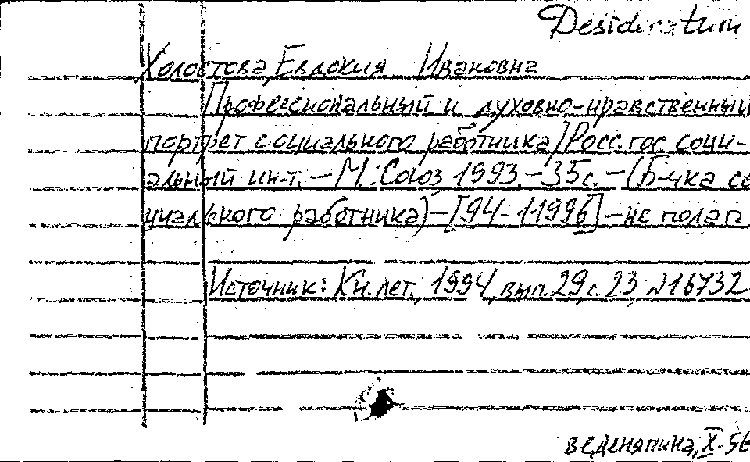 Desideratum
Холостова, Евдокия Ивановна
Профессиональный и духовно-нравственный
портрет социального работника / Росс. гос. соци-
альный инт. – М.: Союз 1993. – 35с. – (Б-чка со
циального работника) – [94-11996] – не полаг
Источник: Кн. лет., 1994, вып. 29, с. 23 №16732
веденяпина, X-56